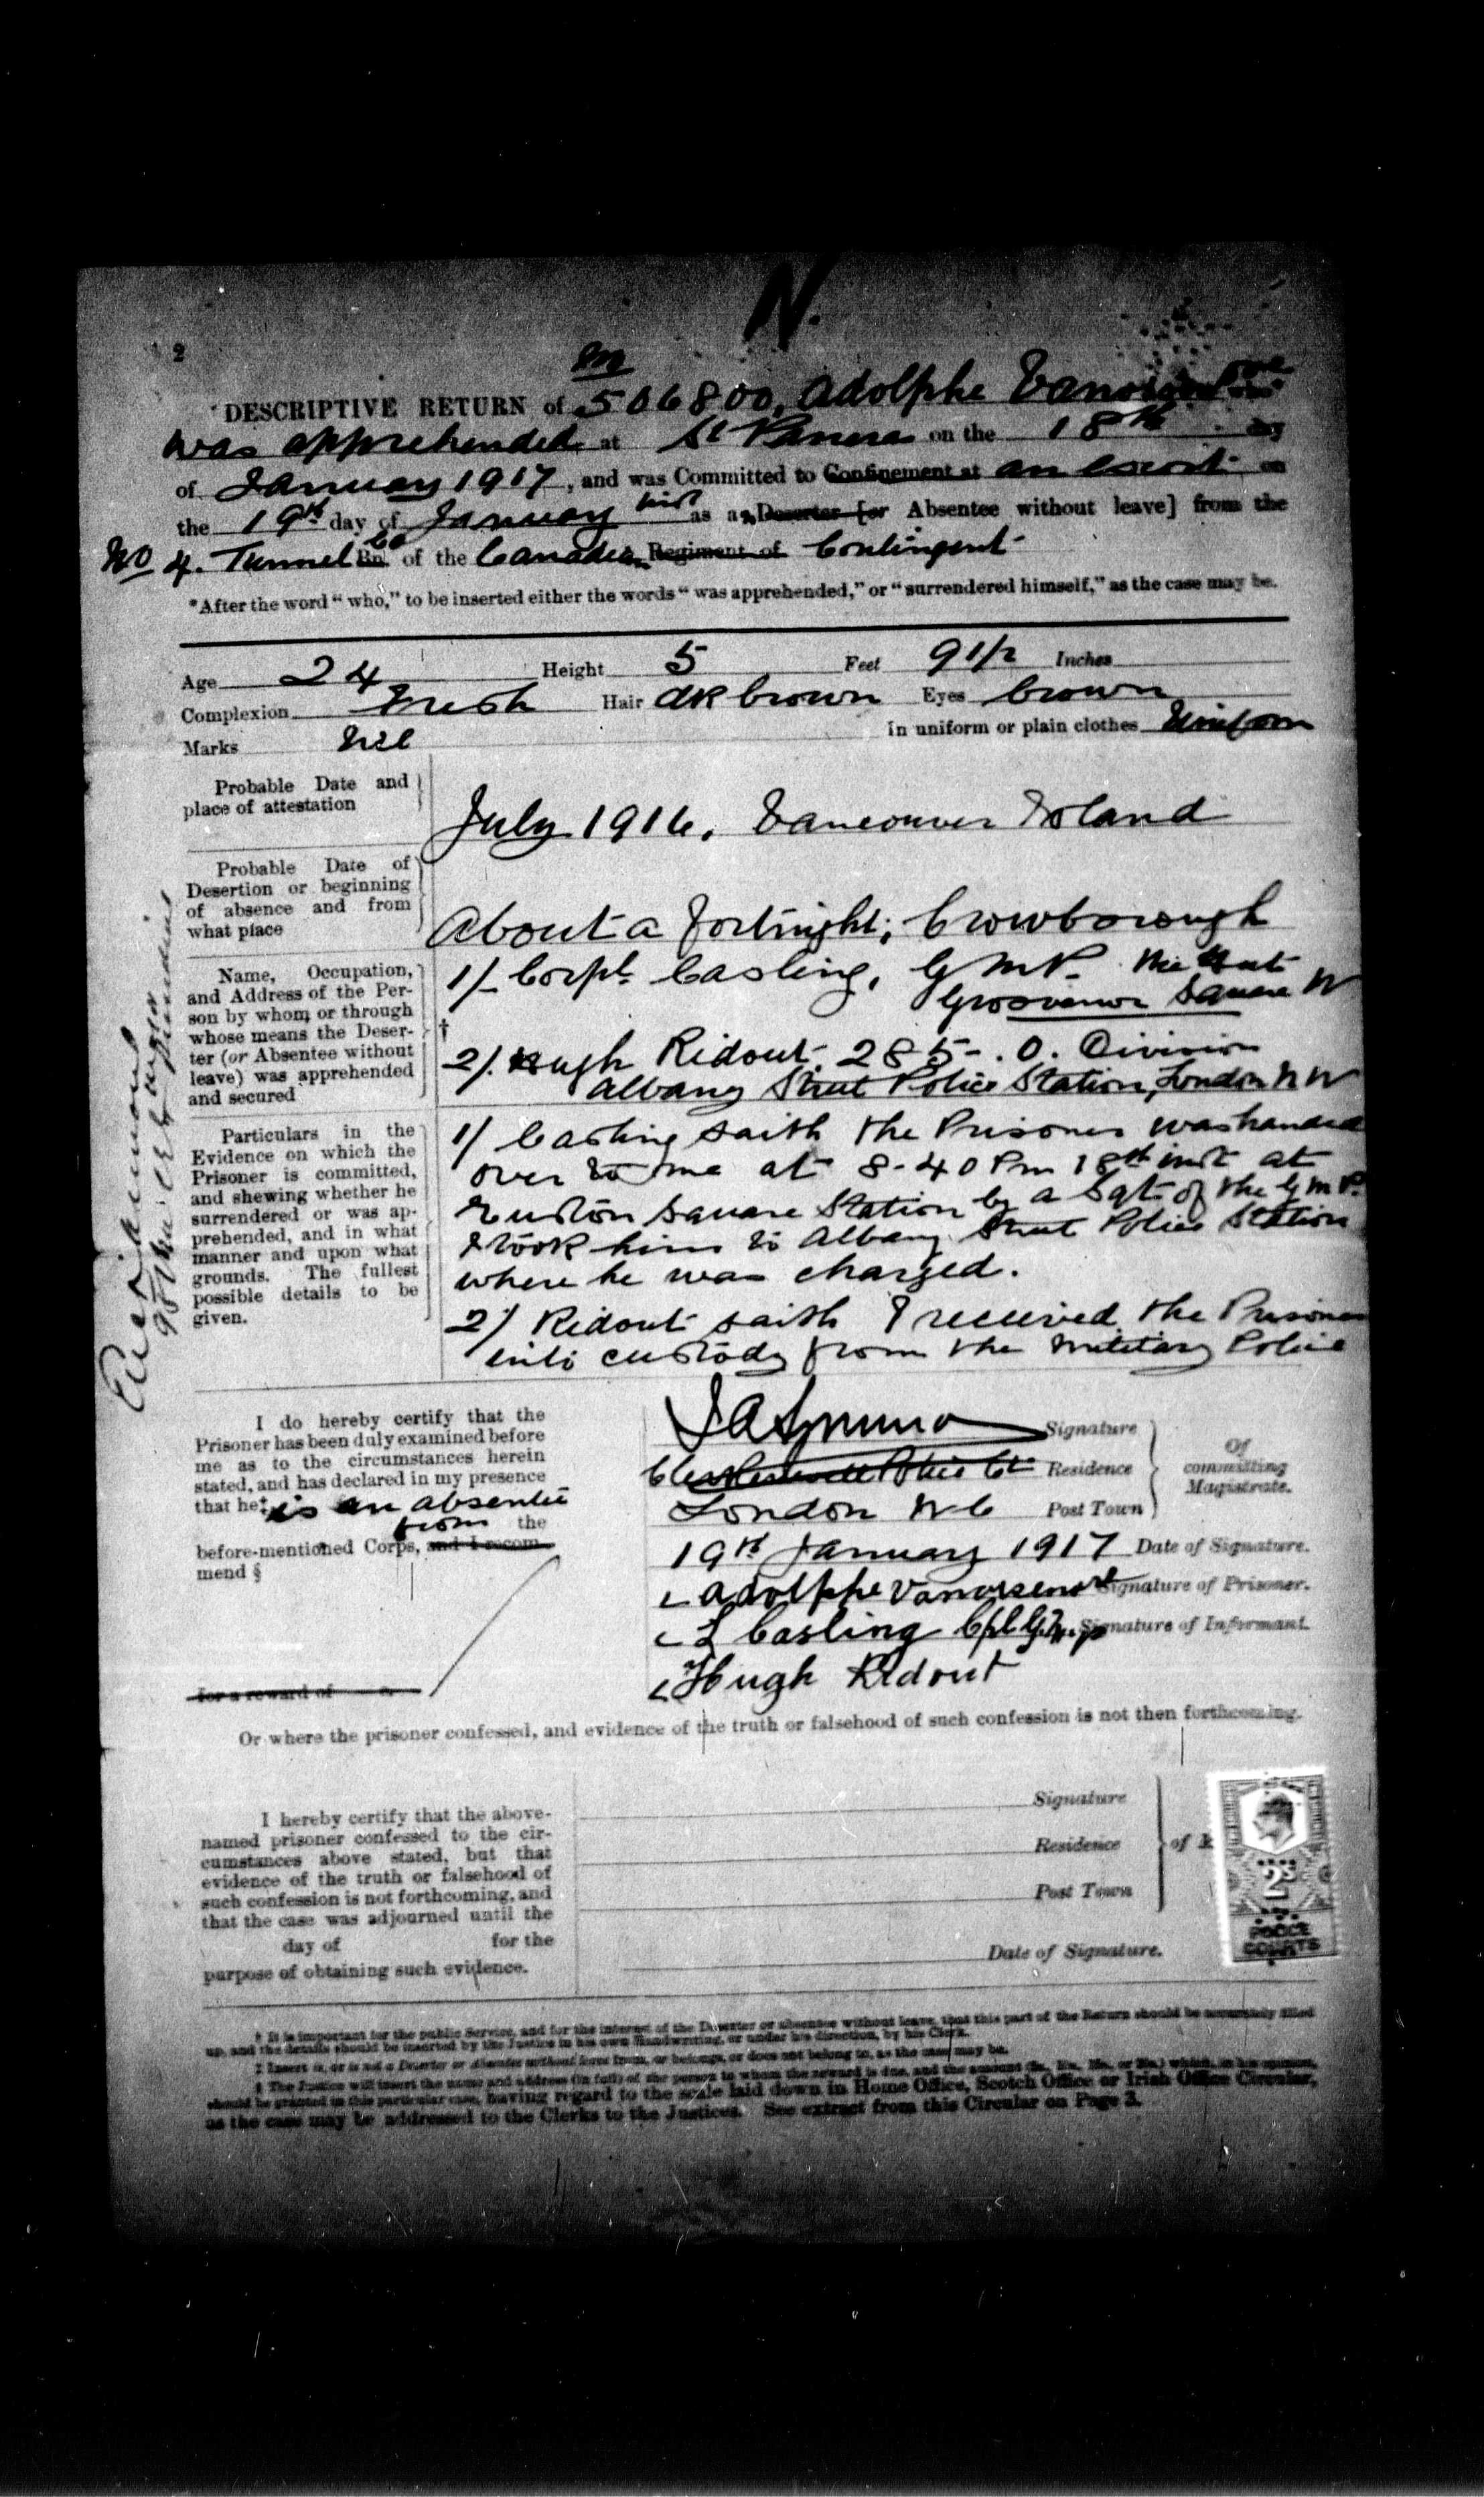 N.
2
DESCRIPTIVE RETURN of 506800, Adolphe
was apprehended at St Pancras on the 18th day
of January 1917, and was Committed to Confinement at an escort on
the 19th day of January inst as an Deserter [or Absentee without leave] from the
No 4. Tunnel Bn. Co of the Canadian Regiment of Contingent
*After the word "who," to be inserted either the words "was apprehended," or "surrendered himself," as the case may be.
Age 24 Height 5 Feet 9 1/2 Inches
Complexion Fresh Hair dk brown Eyes brown
Marks Nil In uniform or plain clothes Uniform
Probable Date and
place of attestation
July 1916, Vancouver Island
Probable Date of
Desertion or beginning
of absence and from
what place
About a fortnight, Crowborough
Name, Occupation,
and Address of the Per-
son by whom or through
whose means the Deser-
ter (or Absentee without
leave) was apprehended
and secured
†
1/- Corpl. Casling, G M P. The Hut
Grosvenor Square W
2/. Hugh Ridout 285 . O. Division
Albany Street Police Station, London N W
Particulars in the
Evidence on which the
Prisoner is committed,
and shewing whether he
surrendered or was ap-
prehended, and in what
manner and upon what
grounds. The fullest
possible details to be
given.
1/ Casling saith The Prisoner was handed
over to me at 8-40 Pm 18th inst at
Euston Square Station by a Sgt of the G M P.
I took him to Albany Street Police Station
where he was charged.
2/ Ridout saith I received the Prisoner
into custody from the Military Police
I do hereby certify that the
Prisoner has been duly examined before
me as to the circumstances herein
stated, and has declared in my presence
that he‡ is an absentee
from the
before-mentioned Corps, and I recom-
mend §
for a reward of
Signature
Clerkenwell Police Ct Residence
London W C Post Town
Of
committing
Magistrate.
19th January 1917 Date of Signature.
Adolphe Signature of Prisoner.
L Casling Cpl G.M.P Signature of Informant.
Hugh Ridout
Or where the prisoner confessed, and evidence of the truth or falsehood of such confession is not then forthcoming.
I hereby certify that the above-
named prisoner confessed to the cir-
cumstances above stated, but that
evidence of the truth or falsehood of
such confession is not forthcoming, and
that the case was adjourned until the
day of for the
purpose of obtaining such evidence.
Signature
Residence
Post Town
of
Date of Signature.
2s
POLICE
COURTS
† It is important for the public Service, and for the interest of the Deserter or absentee without leave, that this part of the Return should be accurately filled
up, and the details should be inserted by the Justice in his own Handwriting, or under his direction, by his Clerk.
‡ Insert is, or is not a Deserter or Absentee without leave from, or belongs, or does not belong to, as the case may be.
§ The Justice will insert the name and address (in full) of the person to whom the reward is due, and the amount which, in his opinion,
should be granted in this particular case, having regard to the scale laid down in Home Office, Scotch Office or Irish Office Circular,
as the case may be addressed to the Clerks to the Justices. See extract from this Circular on Page 3.